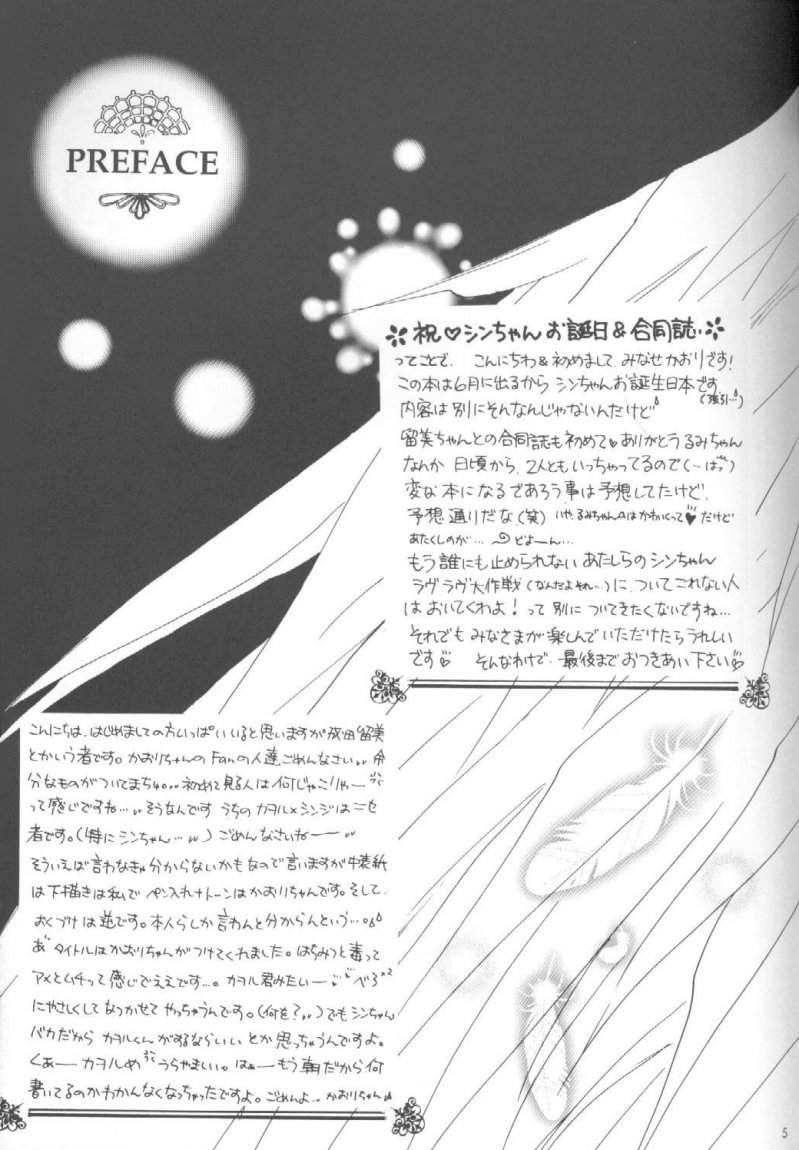 PREFACE
祝♡シンちゃんお誕日&合同誌
ってことで、こんにちわ&初めまして、みなせかおりです!
この本は6月に出るからシンちゃんお誕生日本です
(強引…)
内容は別にそんなんじゃないんだけど
留美ちゃんとの合同誌も初めて♥ありがとうるみちゃん
なんか日頃から、2人ともいっちゃってるので(…ばっ)
変な本になるであろう事は予想してたけど、
予想通りだな(笑) いや、るみちゃんのはかわいくって♥だけど
あたくしのが… どよーん…
もう誰にも止められないあたしらのシンちゃん
ラヴラヴ大作戦(なんだよそれ…)に、ついてこれない人
はおいてくわよ!って別についてきたくないですね…
それでもみなさまが楽しんでいただけたらうれしい
です♡ そんなわけで、最後までおつきあい下さい♡
こんにちは、はじめましての方いっぱいいると思いますが成田留美
とかいう者です。かおりちゃんのFanの人達ごめんなさい、余
分なものがついてまちゅ。初めて見る人は何じゃこりゃー
って感じですね…そうなんですうちのカヲル×シンジはニセ
者です。(特にシンちゃん…)ごめんなさいねー
そういえば言わなきゃ分からないかもなので言いますが中表紙
は下描きは私でペン入れ+トーンはかおりちゃんです。そして、
おくづけは逆です。本人らしか言わんと分からんという…。
あ゛タイトルはかおりちゃんがつけてくれました。はちみつと毒って
アメとムチって感じでええです…。カヲル君みたいー べろ×2
にやさしくしてなつかせてやっちゃうんです。(何を?)でもシンちゃん
バカだからカヲルくんがするならいいとか思っちゃうんですよ。
くぁーカヲルめうらやましい。はぁーもう朝だから何
書いてるのかわかんなくなっちゃったですよ。ごめんよ…かおりちゃん
5